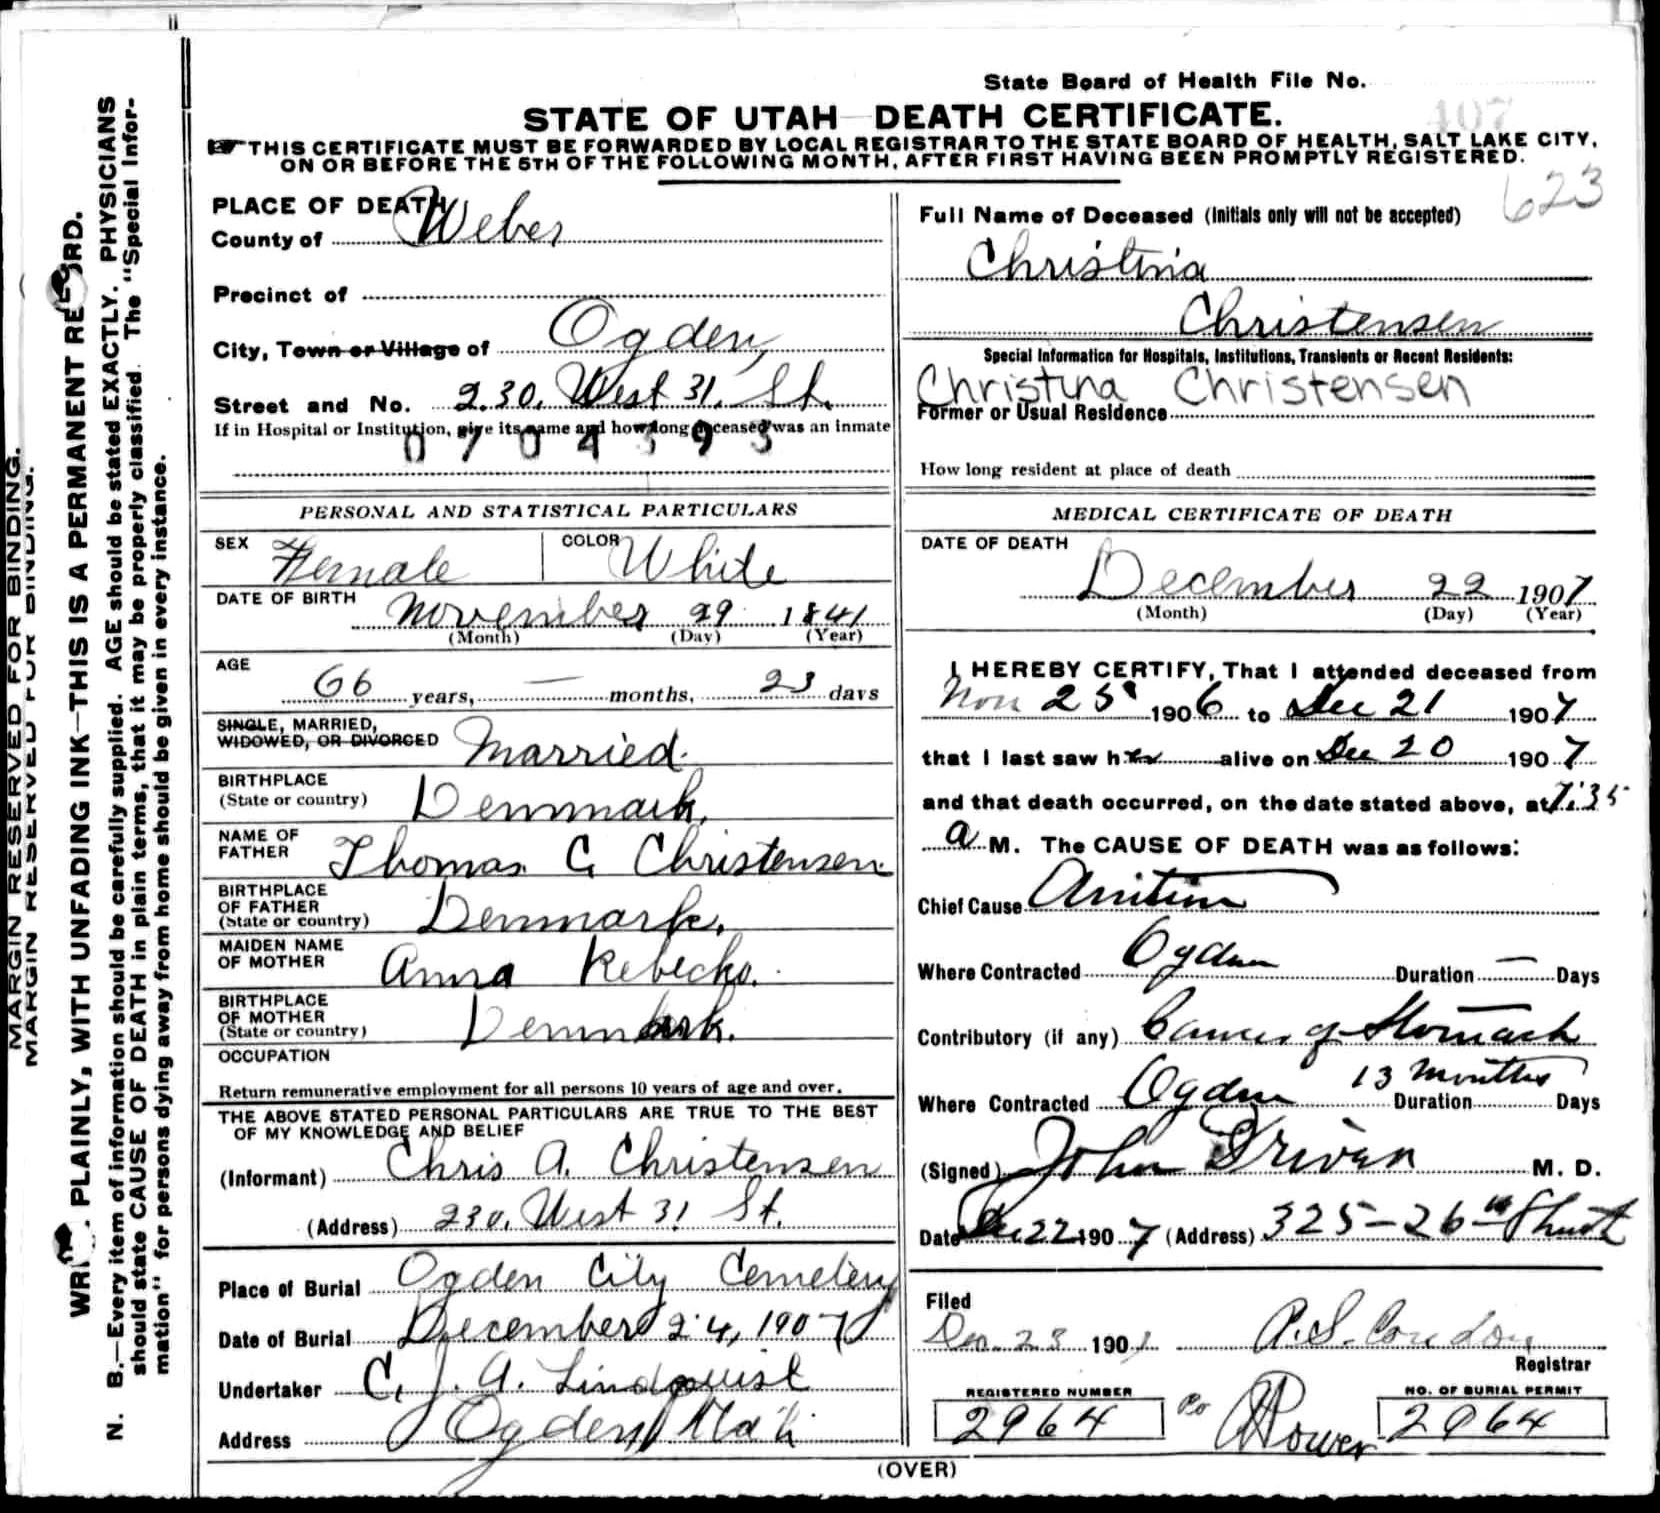 State Board of Health File No.
407
STATE OF UTAH—DEATH CERTIFICATE.
THIS CERTIFICATE MUST BE FORWARDED BY LOCAL REGISTRAR TO THE STATE BOARD OF HEALTH, SALT LAKE CITY,
ON OR BEFORE THE 5TH OF THE FOLLOWING MONTH, AFTER FIRST HAVING BEEN PROMPTLY REGISTERED.
623
MARGIN RESERVED FOR BINDING.
MARGIN RESERVED FOR BINDING.
WRI PLAINLY, WITH UNFADING INK—THIS IS A PERMANENT RECORD.
N. B.—Every item of information should be carefully supplied. AGE should be stated EXACTLY. PHYSICIANS
should state CAUSE OF DEATH in plain terms, that it may be properly classified. The "Special Infor-
mation" for persons dying away from home should be given in every instance.
PLACE OF DEATH
County of Weber
Precinct of
City, Town or Village of Ogden,
Street and No. 230. West 31. St.
If in Hospital or Institution, give its name and how long deceased was an inmate
0704393
PERSONAL AND STATISTICAL PARTICULARS
SEX Female COLOR White
DATE OF BIRTH November 29 1841
(Month) (Day) (Year)
AGE
66 years, — months, 23 days
SINGLE, MARRIED,
WIDOWED, OR DIVORCED Married.
BIRTHPLACE
(State or country) Denmark.
NAME OF
FATHER Thomas C Christensen
BIRTHPLACE
OF FATHER
(State or country) Denmark.
MAIDEN NAME
OF MOTHER Anna
BIRTHPLACE
OF MOTHER
(State or country) Denmark.
OCCUPATION
Return remunerative employment for all persons 10 years of age and over.
THE ABOVE STATED PERSONAL PARTICULARS ARE TRUE TO THE BEST
OF MY KNOWLEDGE AND BELIEF
(Informant) Chris A. Christensen
(Address) 230. West 31 St.
Place of Burial Ogden City Cemetery
Date of Burial December 24, 1907
Undertaker C. J. A. Lindquist
Address Ogden Utah
Full Name of Deceased (Initials only will not be accepted)
Christina
Christensen
Special Information for Hospitals, Institutions, Transients or Recent Residents:
Christina Christensen
Former or Usual Residence
How long resident at place of death
MEDICAL CERTIFICATE OF DEATH
DATE OF DEATH
December 22 1907
(Month) (Day) (Year)
I HEREBY CERTIFY, That I attended deceased from
Nov 25 1906 to Dec 21 1907
that I last saw her alive on Dec 20 1907
and that death occurred, on the date stated above, at 7:35
a M. The CAUSE OF DEATH was as follows:
Chief Cause
Where Contracted Ogden Duration — Days
Contributory (if any) Cancer of Stomach
Where Contracted Ogden Duration 13 Months Days
(Signed) John Driver M. D.
Date Dec 22 1907 (Address) 325-26th Street
Filed
Dec. 23 1907 A. S. Condon
Registrar
REGISTERED NUMBER
2964
Power
NO. OF BURIAL PERMIT
2964
(OVER)